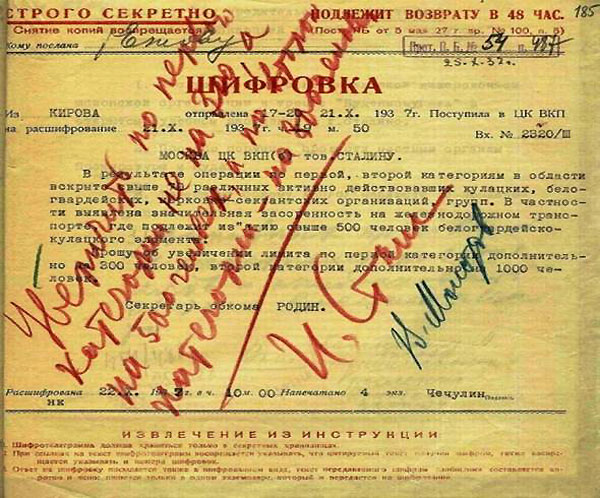 СТРОГО СЕКРЕТНО
ПОДЛЕЖИТ ВОЗВРАТУ В 48 ЧАС.
185
Снятие копий воспрещается
(Пост. ПБ от 5 мая 27 г. пр. № 100, п. 5)
Кому послана
Прот. П. Б. № 54 п.
25.X.37г.
ШИФРОВКА
Из КИРОВА отправлена 17-20 21.X. 1937г. Поступила в ЦК ВКП
на расшифрование 21.X. 1937 м. 50
Вх. № 2320/Ш
МОСКВА ЦК ВКП(б) тов. СТАЛИНУ.
В результате операции по первой, второй категориям в области
вскрыто свыше различных активно действовавших кулацких, бело-
гвардейских, организаций, групп. В частности
значительная засоренность на железнодорожном транс-
порте, где подлежит из'ятию свыше 500 человек белогвардейско-
кулацкого элемента.
Прошу об увеличении лимита по первой категории дополнитель-
но на 300 человек, второй категории дополнительно 1000 че-
ловек.
Секретарь обкома РОДИН.
Увеличить по первой
категории не на 300 а
на 500 человек, а по второй
категории — на 800 человек
И. Сталин
В. Молотов
Расшифрована 22.X. 1937 в ч. 10 м. 00 Напечатано 4 экз. Чечулин
НК
ИЗВЛЕЧЕНИЕ ИЗ ИНСТРУКЦИИ
1. Шифротелеграмма должна храниться только в секретных хранилищах.
2. При ссылках на текст шифротелеграмм воспрещается указывать, что
щается указывать и номера шифровок.
3. Ответ на шифровку